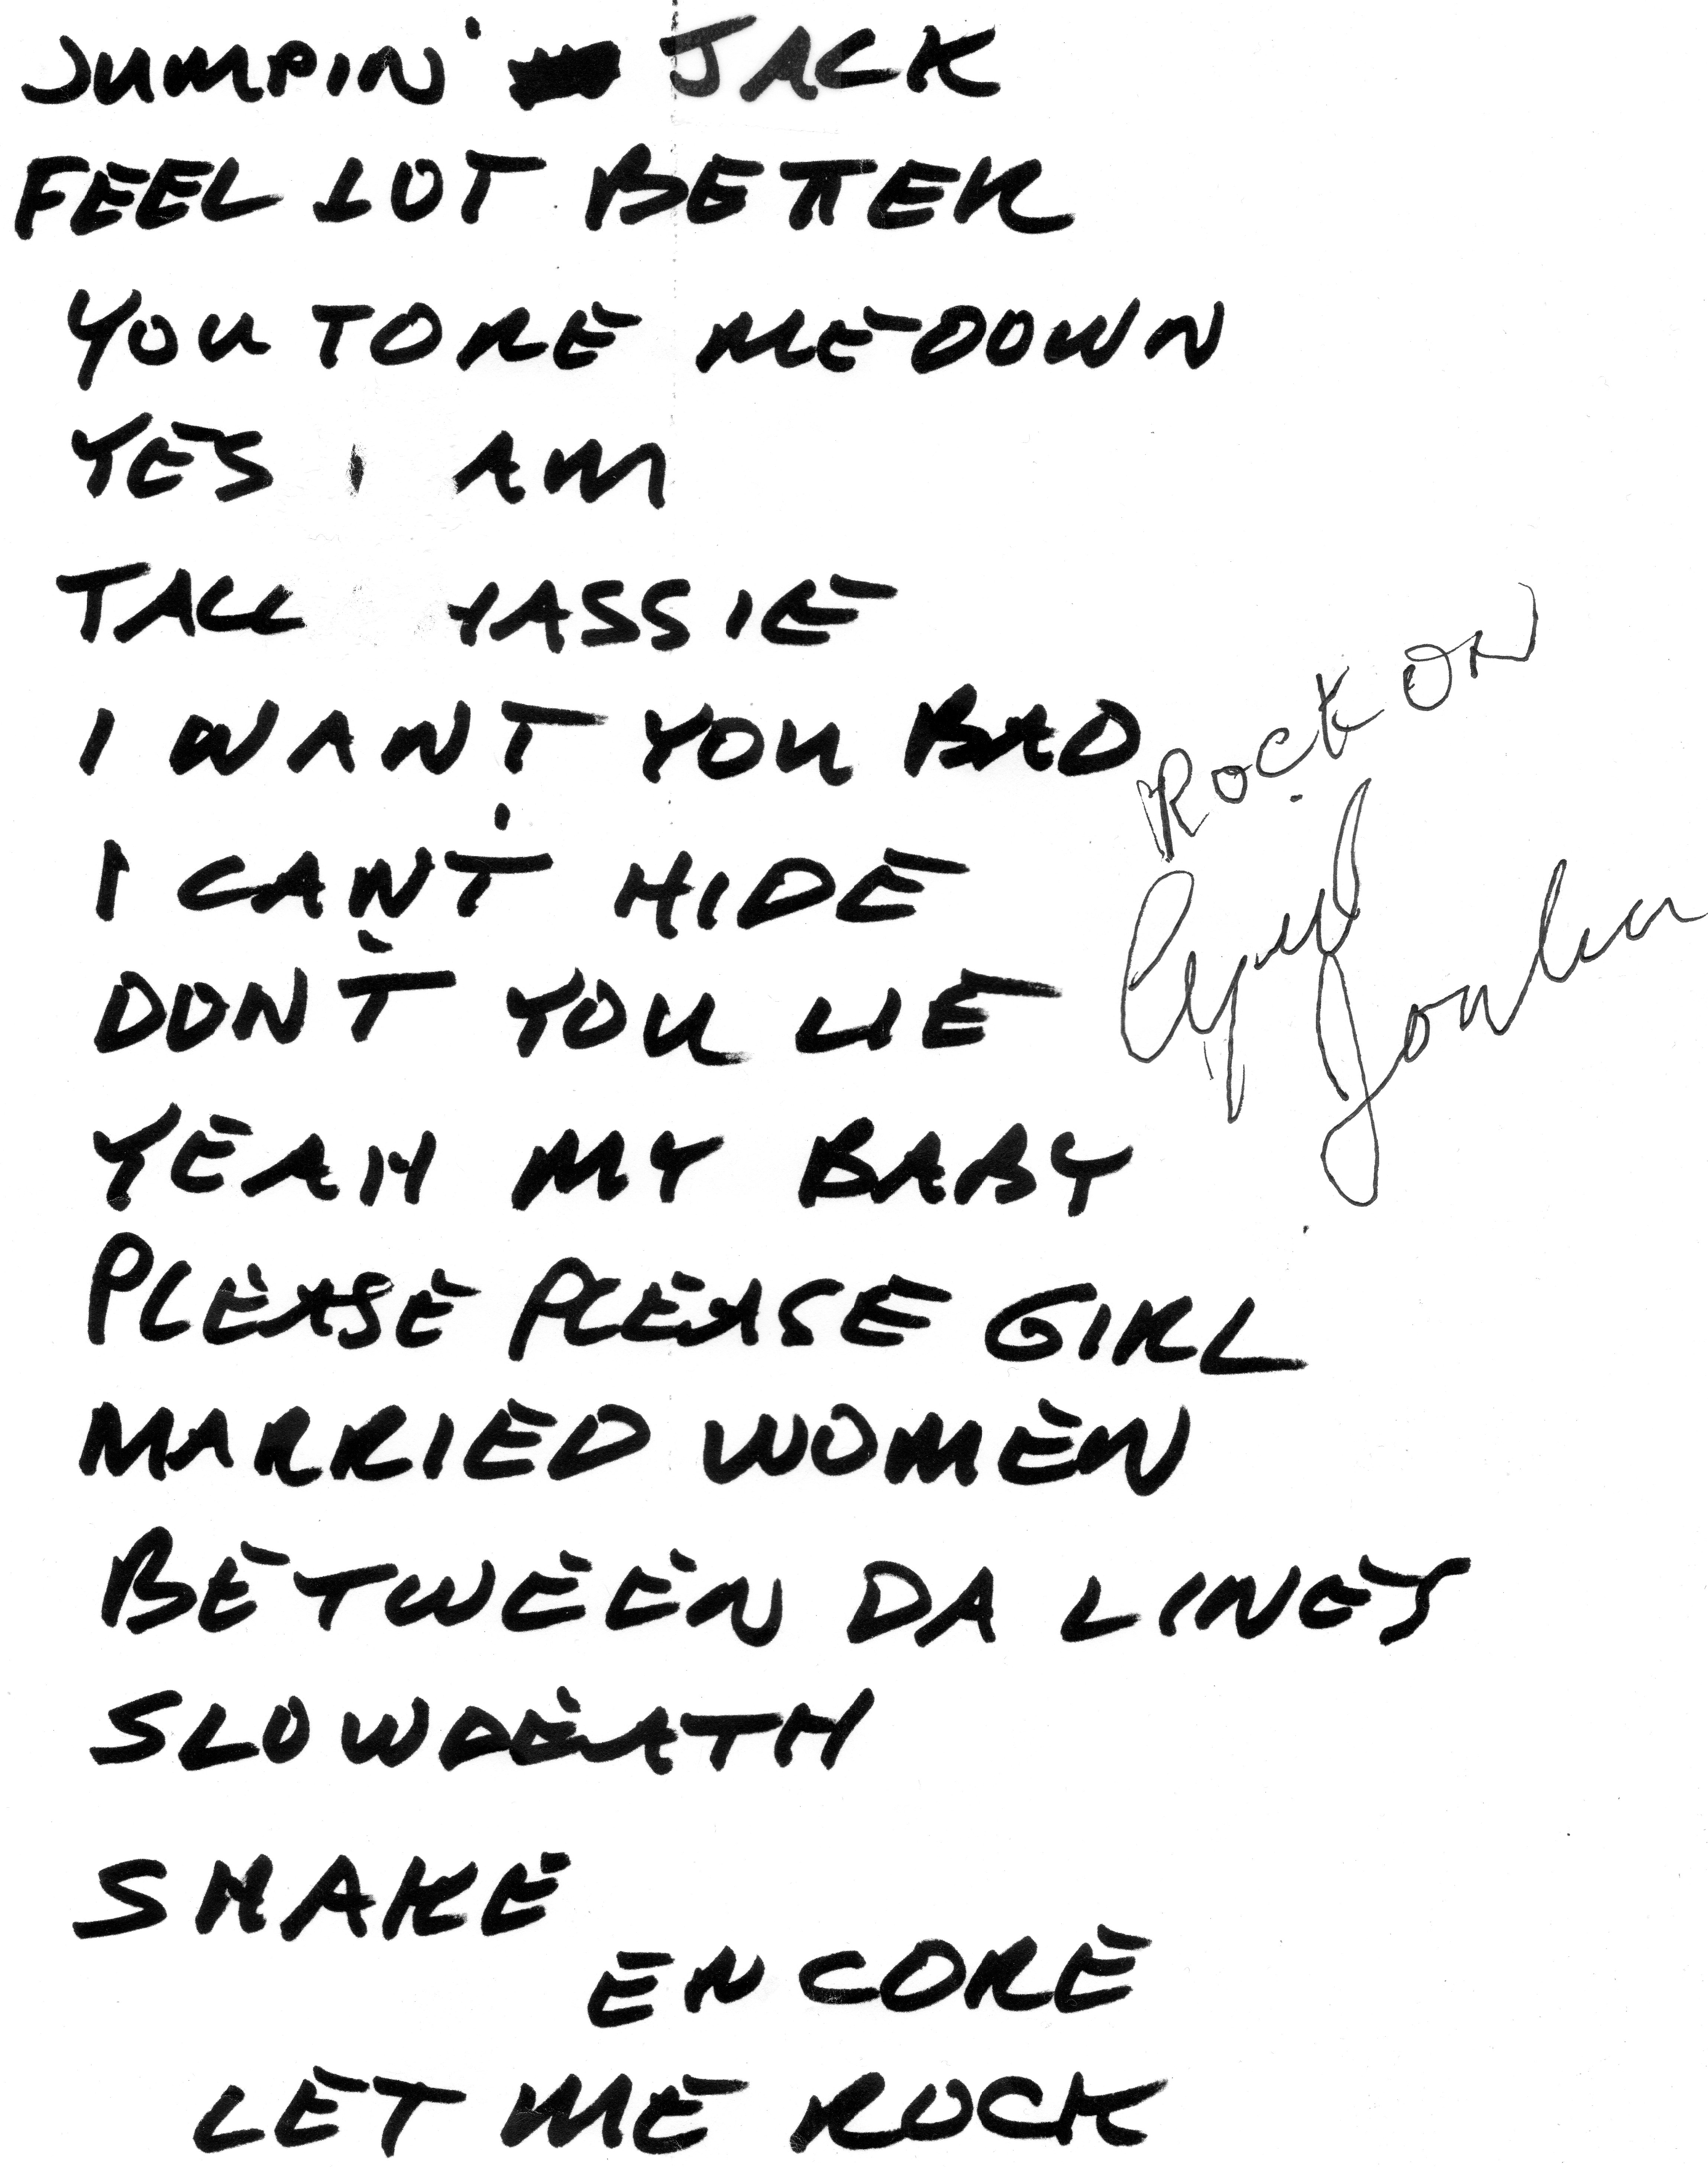 JUMPIN' JACK
FEEL LOT BETTER
YOU TORE ME DOWN
YES I AM
TALL YASSIE
I WANT YOU BAD
I CAN'T HIDE
DON'T YOU LIE
YEAH MY BABY
PLEASE PLEASE GIRL
MARRIED WOMEN
BETWEEN DA LINES
SLOW DEATH
SHAKE
ENCORE
LET ME ROCK
ROCK ON
Cyril Jordan